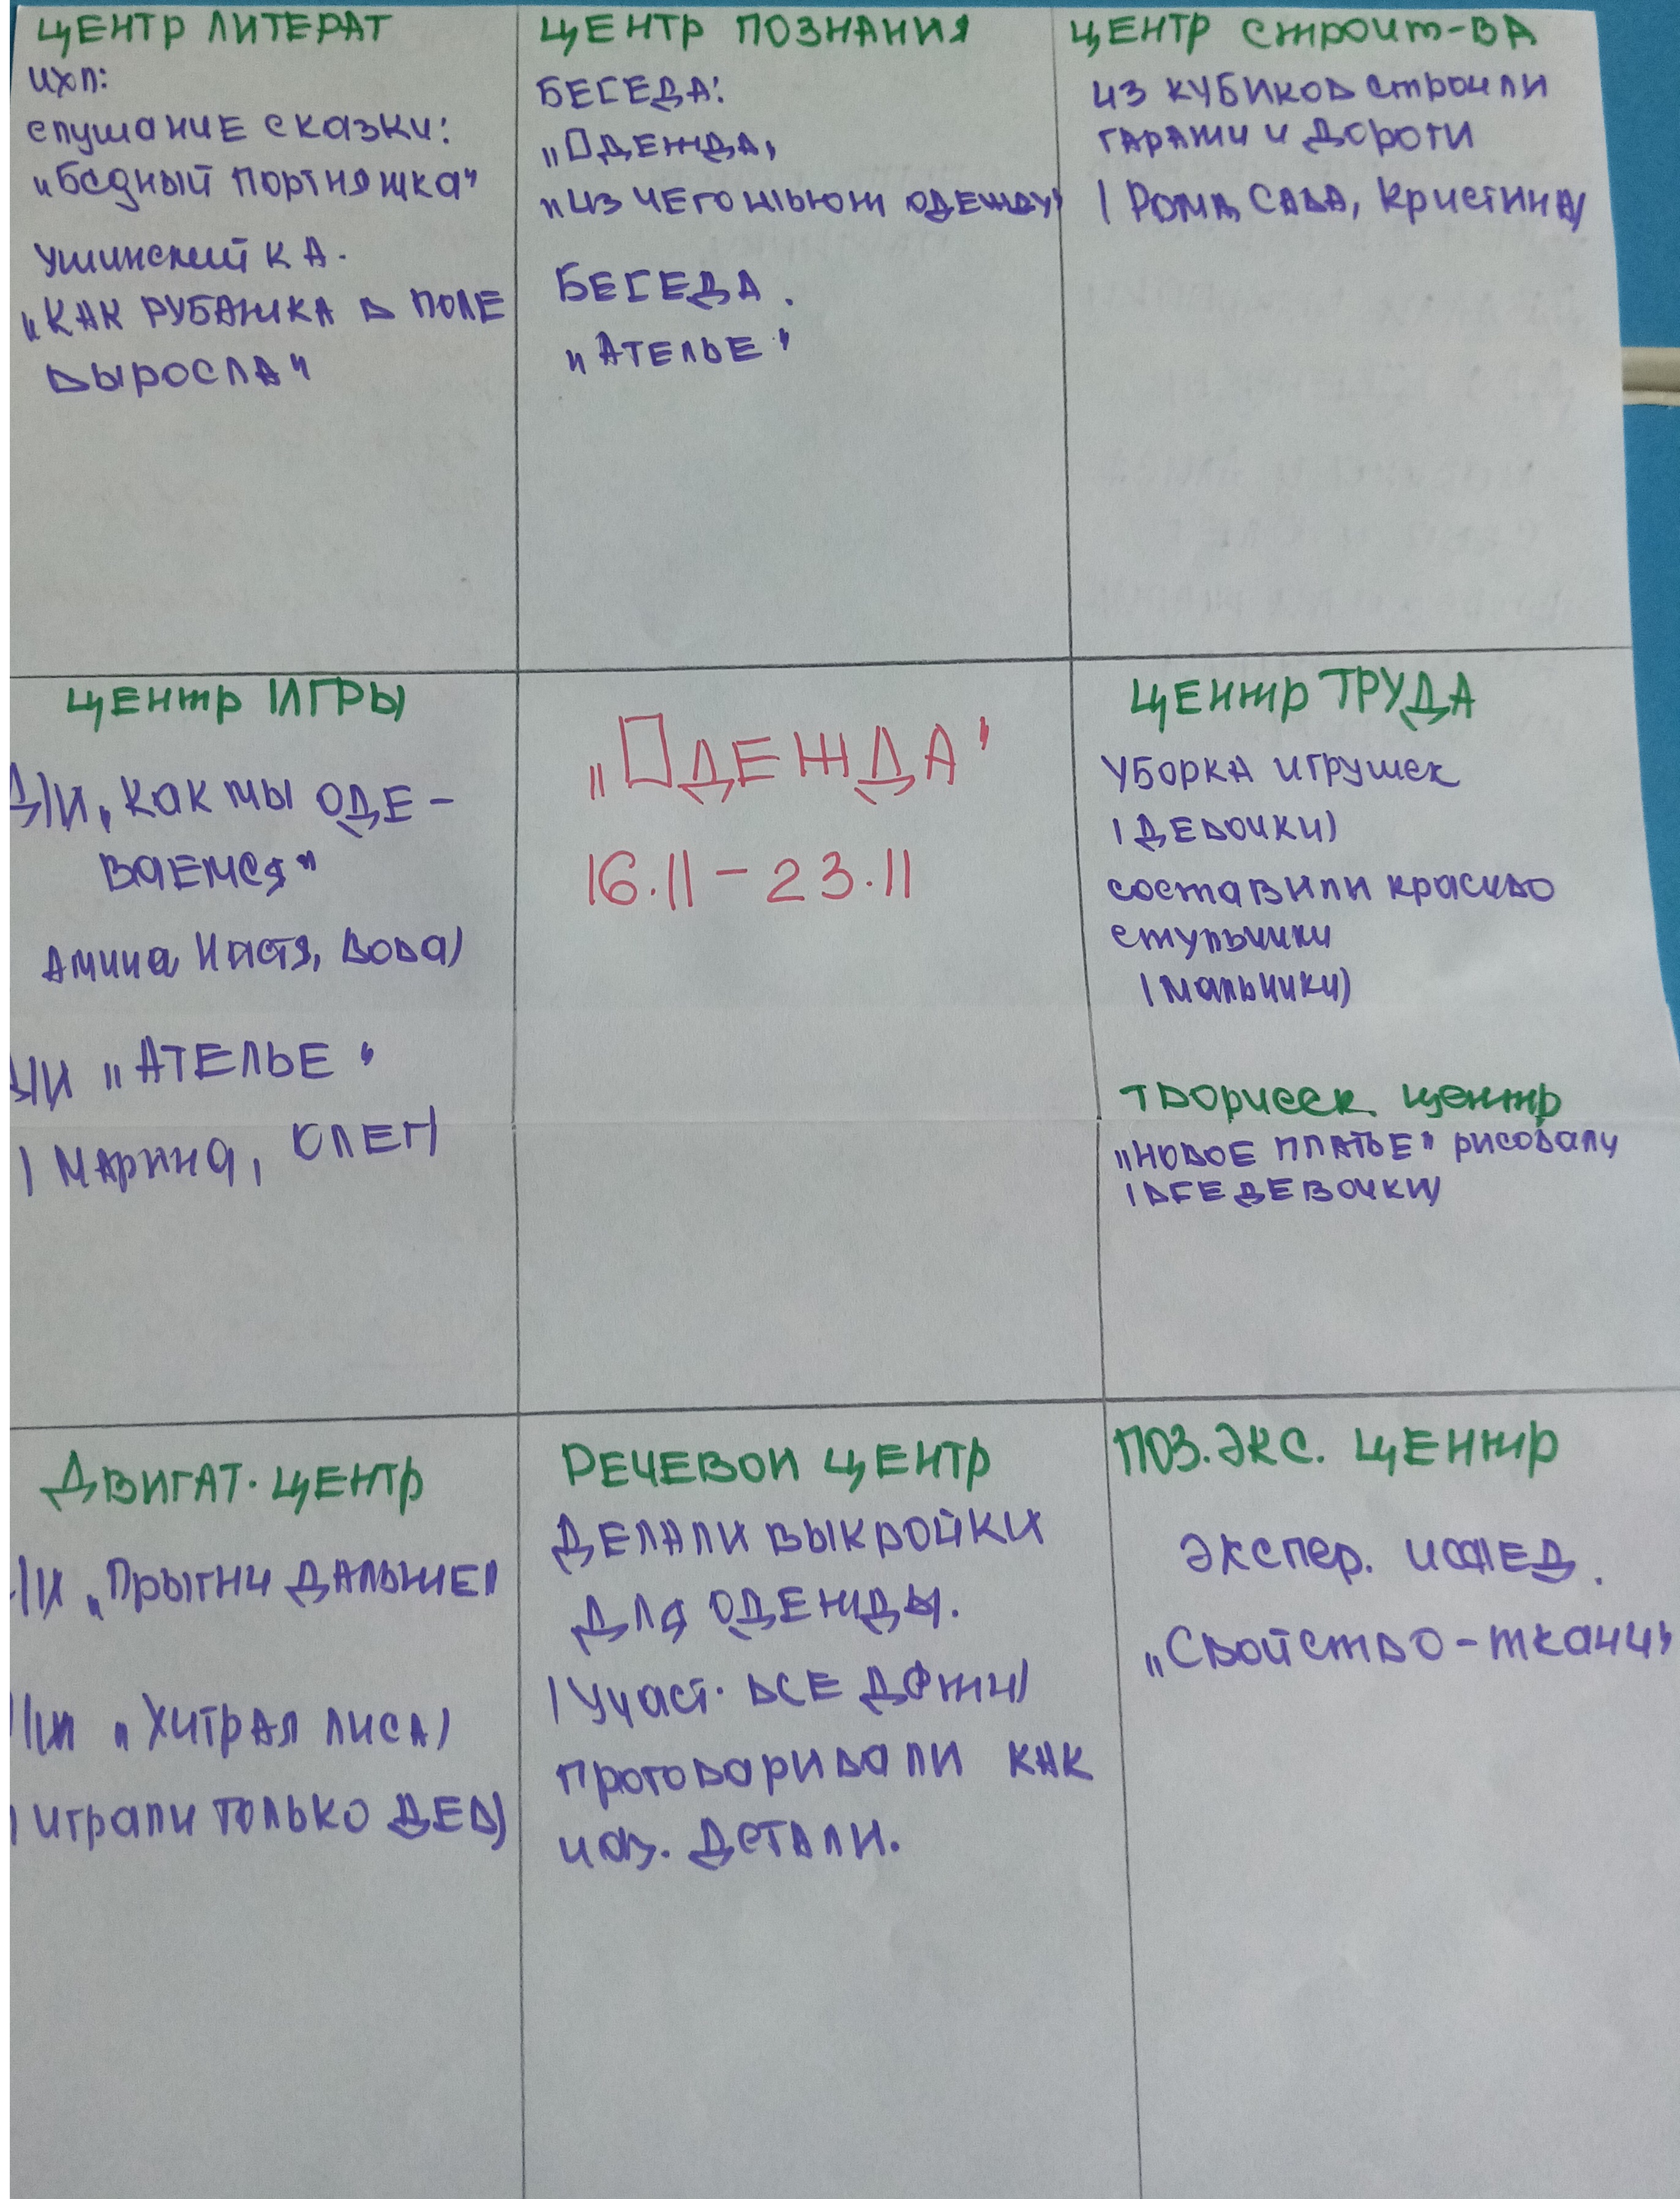 ЦЕНТР ЛИТЕРАТ
ИХЛ:
слушаниЕ сказки:
„бедный портняжка"
Ушинский К А.
„КАК РУБАШКА В ПОЛЕ
ВЫРОСЛА"
ЦЕНТР ПОЗНАНИЯ
БЕСЕДА:
„ОДЕЖДА"
„ИЗ ЧЕГО ШЬЮТ ОДЕЖДУ"
БЕСЕДА.
„АТЕЛЬЕ"
ЦЕНТР строит-ВА
ИЗ КУБИКОВ строили
ГАРАЖИ И ДОРОГИ
(РОМА, САВА, Кристина)
ЦЕНТР ИГРЫ
Д/И „Как мы ОДЕ-
ВАЕМСЯ"
Амина Настя, Вова)
/И „АТЕЛЬЕ"
(МАРИНА, ОЛЕГ)
„ОДЕЖДА"
16.11-23.11
ЦЕНТР ТРУДА
УБОРКА ИГРУШЕК
(ДЕВОЧКИ)
составили красиво
стульчики
(мальчики)
творческ. центр
„НОВОЕ ПЛАТЬЕ" рисовали
(ВСЕ ДЕВОЧКИ)
ДВИГАТ. ЦЕНТР
/И „Прыгни ДАЛЬШЕ"
/И „ХИТРАЯ ЛИСА)
(играли только ДЕВ)
РЕЧЕВОЙ ЦЕНТР
ДЕЛАЛИ ВЫКРОЙКИ
ДЛЯ ОДЕЖДЫ.
(Участ. ВСЕ ДЕТИ)
проговаривали КАК
ДЕТАЛИ.
ПОЗ. ЭКС. ЦЕНТР
Экспер. исслЕД.
„Свойство-ткани"